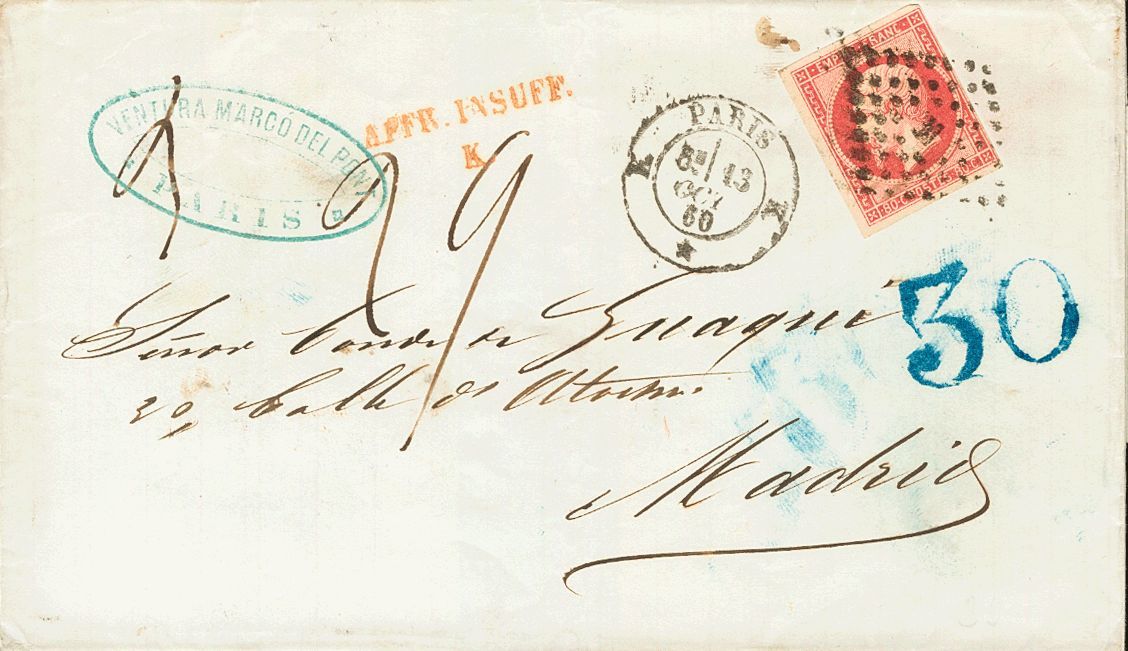 VENTURA MARCÓ DEL PONT
PARIS
AFFR. INSUFF.
K
PARIS
K K
13
OCT
60
EMPIRE FRANC
80 C POSTES 80 C
30
Señor Conde de Guaqui
Calle de Atocha
Madrid